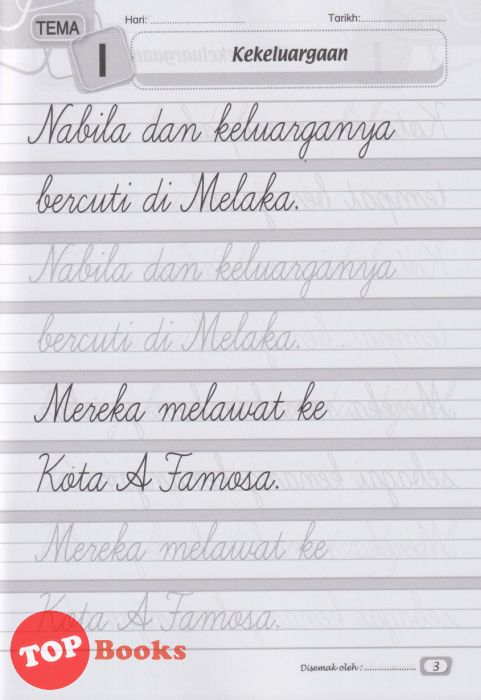 TEMA
1
Hari: ................................ Tarikh:................................
Kekeluargaan
Nabila dan keluarganya
bercuti di Melaka.
Nabila dan keluarganya
bercuti di Melaka.
Mereka melawat ke
Kota A Famosa.
Mereka melawat ke
Kota A Famosa.
TOP Books
Disemak oleh : .................... 3